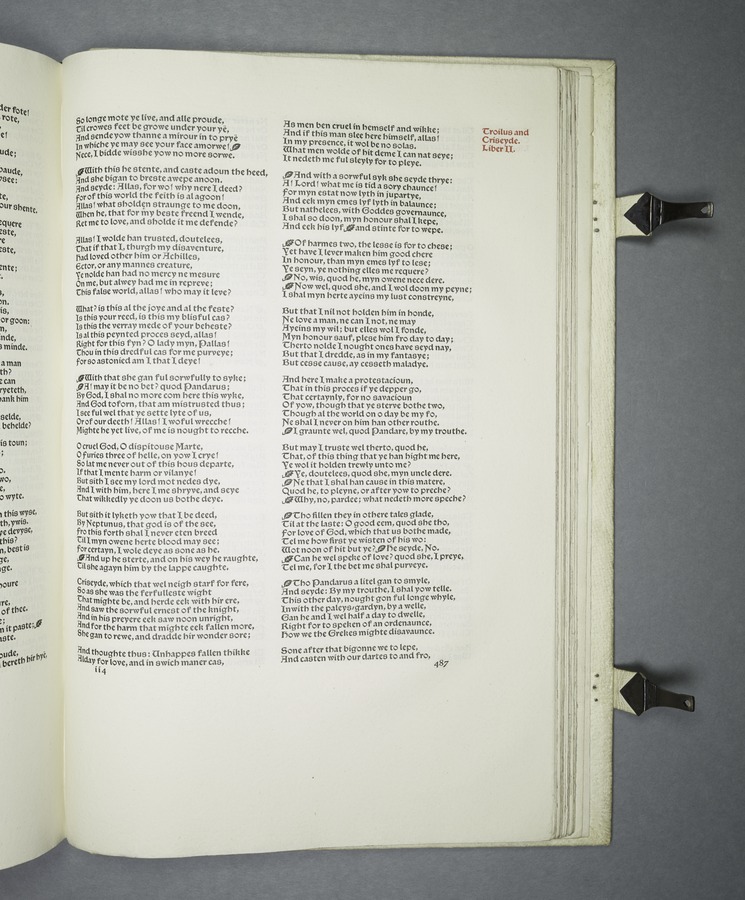 der fote!
rote,
e!
ude;
oaude,
te,
our shente.
equere
este,
re
este,
ente;
s,
on.
is,
or goon:
n,
nde,
s minde.
a man
th?
e can
ryeteth,
ank him
selde.
behelde?
is toun;
;
o.
wo,
e,
o wyte.
n this wyse,
th, ywis.
ye devyse,
this?
n, best is
ge,
ge.
noure
ure,
of thee.
n it paste;
aste.
oude,
bereth hir hyë,
So longe mote ye live, and alle proude,
Til crowes feet be growe under your yë,
And sende yow thanne a mirour in to pryë
In whiche ye may see your face amorwe!
Nece, I bidde wisshe yow no more sorwe.
With this he stente, and caste adoun the heed,
And she bigan to breste awepe anoon.
And seyde: Allas, for wo! why nere I deed?
For of this world the feith is al agoon!
Allas! what sholden straunge to me doon,
When he, that for my beste freend I wende,
Ret me to love, and sholde it me defende?
Allas! I wolde han trusted, doutelees,
That if that I, thurgh my disaventure,
Had loved other him or Achilles,
Ector, or any mannes creature,
Ye nolde han had no mercy ne mesure
On me, but alwey had me in repreve;
This false world, allas! who may it leve?
What? is this al the joye and al the feste?
Is this your reed, is this my blisful cas?
Is this the verray mede of your beheste?
Is al this peynted proces seyd, allas!
Right for this fyn? O lady myn, Pallas!
Thou in this dredful cas for me purveye;
For so astonied am I that I deye!
With that she gan ful sorwfully to syke;
A! may it be no bet? quod Pandarus;
By God, I shal no more com here this wyke,
And God toforn, that am mistrusted thus;
I see ful wel that ye sette lyte of us,
Or of our deeth! Allas! I woful wrecche!
Mighte he yet live, of me is nought to recche.
O cruel God, O dispitouse Marte,
O furies three of helle, on yow I crye!
So lat me never out of this hous departe,
If that I mente harm or vilanye!
But sith I see my lord mot nedes dye,
And I with him, here I me shryve, and seye
That wikkedly ye doon us bothe deye.
But sith it lyketh yow that I be deed,
By Neptunus, that god is of the see,
Fro this forth shal I never eten breed
Til I myn owene herte blood may see;
For certayn, I wole deye as sone as he.
And up he sterte, and on his wey he raughte,
Til she agayn him by the lappe caughte.
Criseyde, which that wel neigh starf for fere,
So as she was the ferfulleste wight
That mighte be, and herde eek with hir ere,
And saw the sorwful ernest of the knight,
And in his preyere eek saw noon unright,
And for the harm that mighte eek fallen more,
She gan to rewe, and dradde hir wonder sore;
And thoughte thus: Unhappes fallen thikke
Alday for love, and in swich maner cas,
ii4
As men ben cruel in hemself and wikke;
And if this man slee here himself, allas!
In my presence, it wol be no solas.
What men wolde of hit deme I can nat seye;
It nedeth me ful sleyly for to pleye.
And with a sorwful syk she seyde thrye:
A! Lord! what me is tid a sory chaunce!
For myn estat now lyth in jupartye,
And eek myn emes lyf lyth in balaunce;
But nathelees, with Goddes governaunce,
I shal so doon, myn honour shal I kepe,
And eek his lyf, and stinte for to wepe.
Of harmes two, the lesse is for to chese;
Yet have I lever maken him good chere
In honour, than myn emes lyf to lese;
Ye seyn, ye nothing elles me requere?
No, wis, quod he, myn owene nece dere.
Now wel, quod she, and I wol doon my peyne;
I shal myn herte ayeins my lust constreyne,
But that I nil not holden him in honde,
Ne love a man, ne can I not, ne may
Ayeins my wil; but elles wol I fonde,
Myn honour sauf, plese him fro day to day;
Therto nolde I nought ones have seyd nay,
But that I dredde, as in my fantasye;
But cesse cause, ay cesseth maladye.
And here I make a protestacioun,
That in this proces if ye depper go,
That certaynly, for no savacioun
Of yow, though that ye sterve bothe two,
Though al the world on o day be my fo,
Ne shal I never on him han other routhe.
I graunte wel, quod Pandare, by my trouthe.
But may I truste wel therto, quod he,
That, of this thing that ye han hight me here,
Ye wol it holden trewly unto me?
Ye, doutelees, quod she, myn uncle dere.
Ne that I shal han cause in this matere,
Quod he, to pleyne, or after yow to preche?
Why, no, pardee; what nedeth more speche?
Tho fillen they in othere tales glade,
Til at the laste: O good eem, quod she tho,
For love of God, which that us bothe made,
Tel me how first ye wisten of his wo:
Wot noon of hit but ye? He seyde, No.
Can he wel speke of love? quod she, I preye,
Tel me, for I the bet me shal purveye.
Tho Pandarus a litel gan to smyle,
And seyde: By my trouthe, I shal yow telle.
This other day, nought gon ful longe whyle,
Inwith the paleys-gardyn, by a welle,
Gan he and I wel half a day to dwelle,
Right for to speken of an ordenaunce,
How we the Grekes mighte disavaunce.
Sone after that bigonne we to lepe,
And casten with our dartes to and fro,
487
Troilus and
Criseyde.
Liber II.